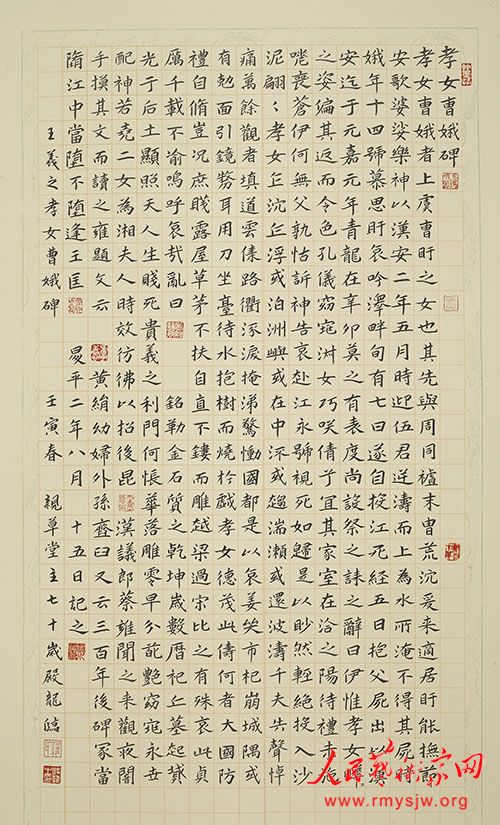 孝女曹娥碑
孝女曹娥者上虞曹盱之女也其先與周同祖末胄荒沉爰来適居盱能撫節
安歌婆娑樂神以漢安二年五月時迎伍君逆濤而上為水所淹不得其屍時
娥年十四號慕思盱哀吟澤畔旬有七日遂自投江死經五日抱父屍出以漢
安迄于元嘉元年青龍在辛卯莫之有表度尚設祭之誄之辭曰伊惟孝女曄〻
之姿偏其返而令色孔儀窈窕淑女巧咲倩兮宜其家室在洽之陽待禮未施
嗟喪蒼伊何無父孰怙訴神告哀赴江永號視死如歸是以眇然輕絕投入沙
泥翩〻孝女乍沉乍浮或泊洲嶼或在中流或趨湍瀨或還波濤千夫失聲悼
痛萬餘觀者填道雲集路衢泣淚掩涕驚慟國都是以哀姜哭市杞崩城隅或
有尅面引鏡剺耳用刀坐臺待水抱樹而燒扵戲孝女德茂此儔何者大國防
禮自脩豈況庶賤露屋草茅不扶自直不鏤而雕越梁過宋比之有殊哀此貞
厲千載不渝嗚呼哀哉亂曰 銘勒金石質之乾坤歲數曆祀丘墓起墳
光于后土顯照天人生賤死貴義之利門何悵華落雕零早分葩艷窈窕永世
配神若堯二女為湘夫人時效彷彿以招後昆漢議郎蔡雍聞之来觀夜闇
手摸其文而讀之雍題文云 黃絹幼婦外孫齏臼又云三百年後碑冢當
墮江中當墮不墮逢王匡 昇平二年八月十五日記之
王羲之孝女曹娥碑 壬寅春 親草堂主七十歲殿龍臨
人民艺术家网
www.rmysjw.org